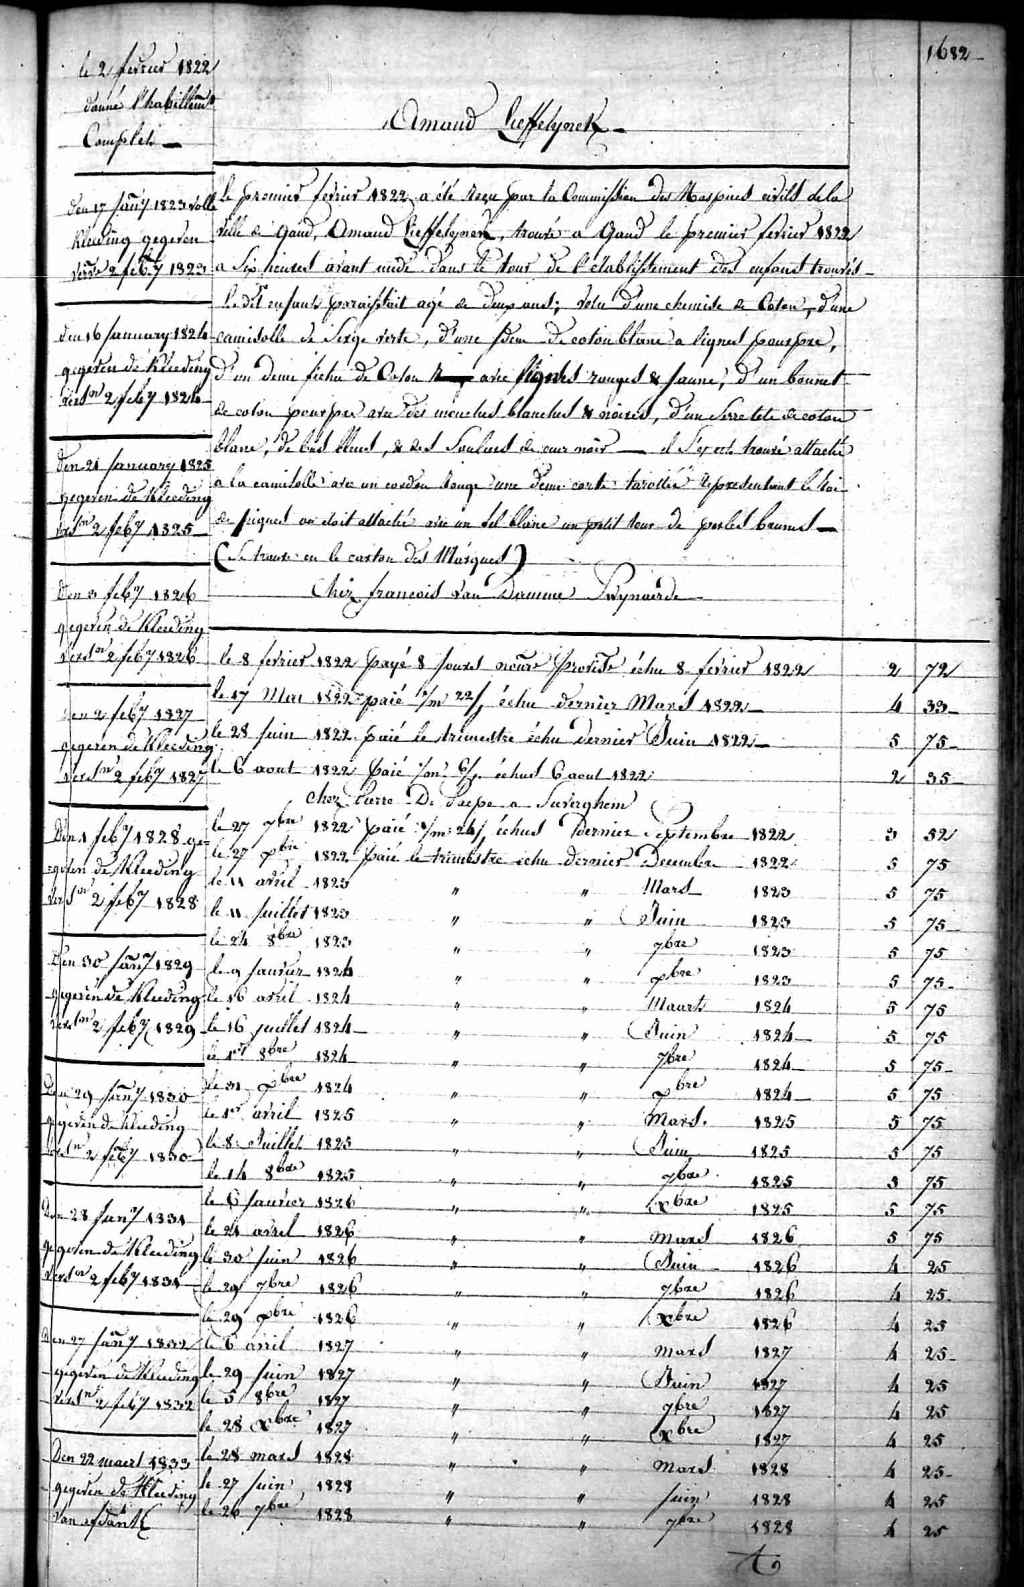 1682
le 2 fevrier 1822
donné l'habillemt
Complet
Amand Lieffelynck
Le premier fevrier 1822 a été reçu par la Commission des Hospices civils de la
ville de Gand, Amand Lieffelynck, trouvé a Gand le premier fevrier 1822
a six heures avant midi dans le tour de l'établissement des enfans trouvés
le dit enfant paraissait agé de deux ans; vetu d'une chemise de Coton, d'une
camisolle de Serge verte, d'une idem de coton blanc a lignes pourpre,
d'un demi fichu de Coton avec lignes rouges & jaune, d'un bonnet
de coton pourpre avec des mouches blanches & noires, d'un Serretete de coton
blanc, de bas bleus, & des Souliers de cuir noir — il s'est trouvé attaché
a la camisolle avec un cordon rouge une demi carte tarottée representant le roi
de piques on doit attaché avec un fil blanc un petit tour de perles brunes
(Se trouve en le carton des Marques)
Chez francois Van Damme Swynaerde
den 17 janry 1823 volle
kleeding gegeven
verse 2 feby 1823
den 16 January 1824
gegeven de Kleeding
versn 2 feby 1824
den 21 January 1825
gegeven de Kleeding
versn 2 feby 1825
Den 3 feby 1826
gegeven de Kleeding
versn 2 feby 1826
den 2 feby 1827
gegeven de Kleeding
versn 2 feby 1827
Den 1 feby 1828 ge-
geven de Kleeding
versn 2 feby 1828
Den 30 Jany 1829
gegeven de Kleeding
versn 2 feby 1829
Den 29 Jany 1830
gegeven de Kleeding
versn 2 feby 1830
Den 28 Jany 1831
gegeven de Kleeding
versn 2 feby 1831
Den 27 Jany 1832
gegeven de Kleeding
versn 2 feby 1832
Den 22 maert 1833
gegeven de Kleeding
van
le 8 fevrier 1822 payé 8 jours échu 8 fevrier 1822 2 72
le 17 Mai 1822 paié 1/m 22/j échu dernier Mars 1822 4 33
le 28 Juin 1822 paié le trimestre échu dernier Juin 1822 5 75
le 6 aout 1822 paié 1/m 6/j échus 6 aout 1822 2 35
chez Pierre De Paepe a Severghem
le 27 7bre 1822 paié 1/m 24/j échus Dernier Septembre 1822 3 52
le 27 xbre 1822 paié le trimestre échu dernier Decembre 1822 5 75
le 11 avril 1823 " " Mars 1823 5 75
le 11 juillet 1823 " " Juin 1823 5 75
le 24 8bre 1823 " " 7bre 1823 5 75
le 9 janvier 1824 " " xbre 1823 5 75
le 16 avril 1824 " " Maart 1824 5 75
le 16 juillet 1824 " " Juin 1824 5 75
le 1er 8bre 1824 " " 7bre 1824 5 75
le 31 xbre 1824 " " xbre 1824 5 75
le 1er avril 1825 " " Mars 1825 5 75
le 8 Juillet 1825 " " Juin 1825 5 75
le 14 8bre 1825 " " 7bre 1825 5 75
le 6 janvier 1826 " " Xbre 1825 5 75
le 21 avril 1826 " " Mars 1826 5 75
le 30 juin 1826 " " Juin 1826 4 25
le 29 7bre 1826 " " 7bre 1826 4 25
le 29 xbre 1826 " " Xbre 1826 4 25
le 6 avril 1827 " " mars 1827 4 25
le 29 juin 1827 " " Juin 1827 4 25
le 5 8bre 1827 " " 7bre 1827 4 25
le 28 Xbre 1827 " " Xbre 1827 4 25
le 28 mars 1828 " " Mars 1828 4 25
le 27 juin 1828 " " juin 1828 4 25
le 26 7bre 1828 " " 7bre 1828 4 25